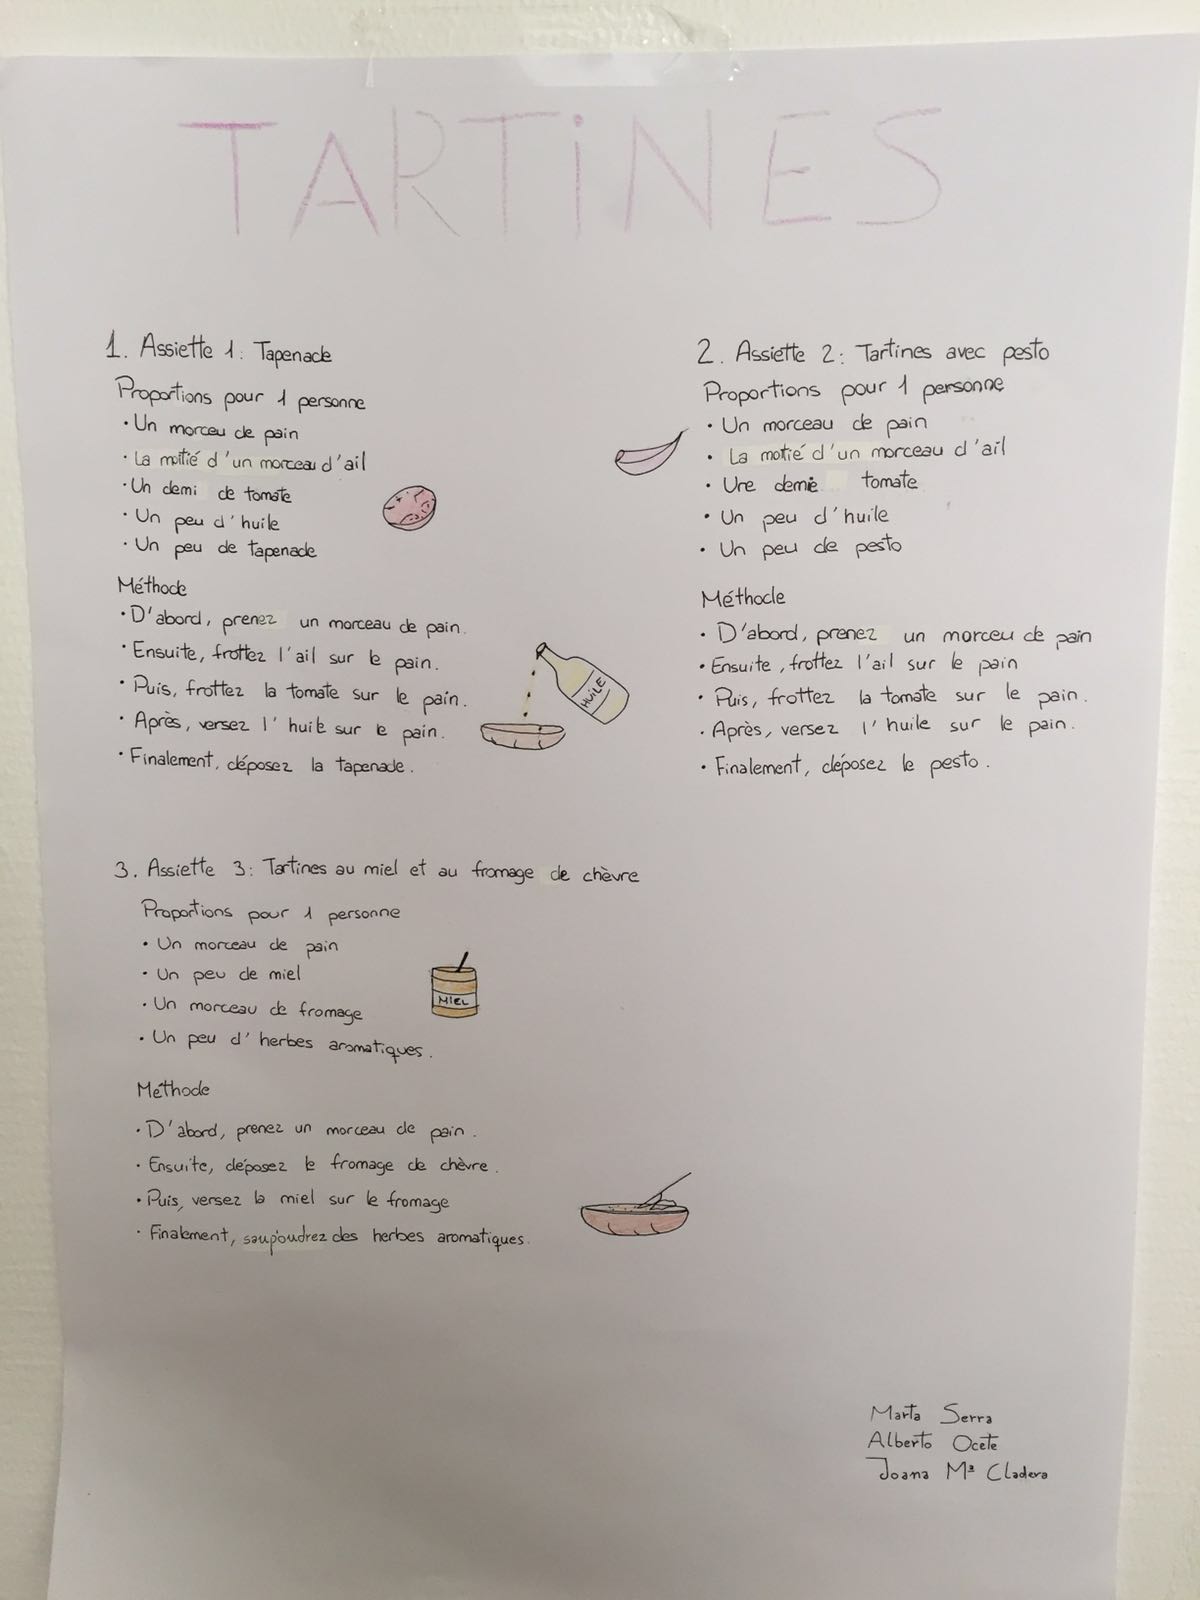 TARTiNES
1. Assiette 1: Tapenade
Proportions pour 1 personne
• Un morceu de pain
• La moitié d'un morceau d'ail
• Un demi de tomate
• Un peu d'huile
• Un peu de tapenade
Méthode
• D'abord, prenez un morceau de pain.
• Ensuite, frottez l'ail sur le pain.
• Puis, frottez la tomate sur le pain.
• Après, versez l'huile sur le pain.
• Finalement, déposez la tapenade.
HUILE
2. Assiette 2: Tartines avec pesto
Proportions pour 1 personne
• Un morceau de pain
• La motié d'un morceau d'ail
• Une demie tomate
• Un peu d'huile
• Un peu de pesto
Méthode
• D'abord, prenez un morceu de pain
• Ensuite, frottez l'ail sur le pain
• Puis, frottez la tomate sur le pain.
• Après, versez l'huile sur le pain.
• Finalement, déposez le pesto.
3. Assiette 3: Tartines au miel et au fromage de chèvre
Proportions pour 1 personne
• Un morceau de pain
• Un peu de miel
• Un morceau de fromage
• Un peu d'herbes aromatiques.
MIEL
Méthode
• D'abord, prenez un morceau de pain.
• Ensuite, déposez le fromage de chèvre.
• Puis, versez la miel sur le fromage
• Finalement, saupoudrez des herbes aromatiques.
Marta Serra
Alberto Ocete
Joana Mª Cladera